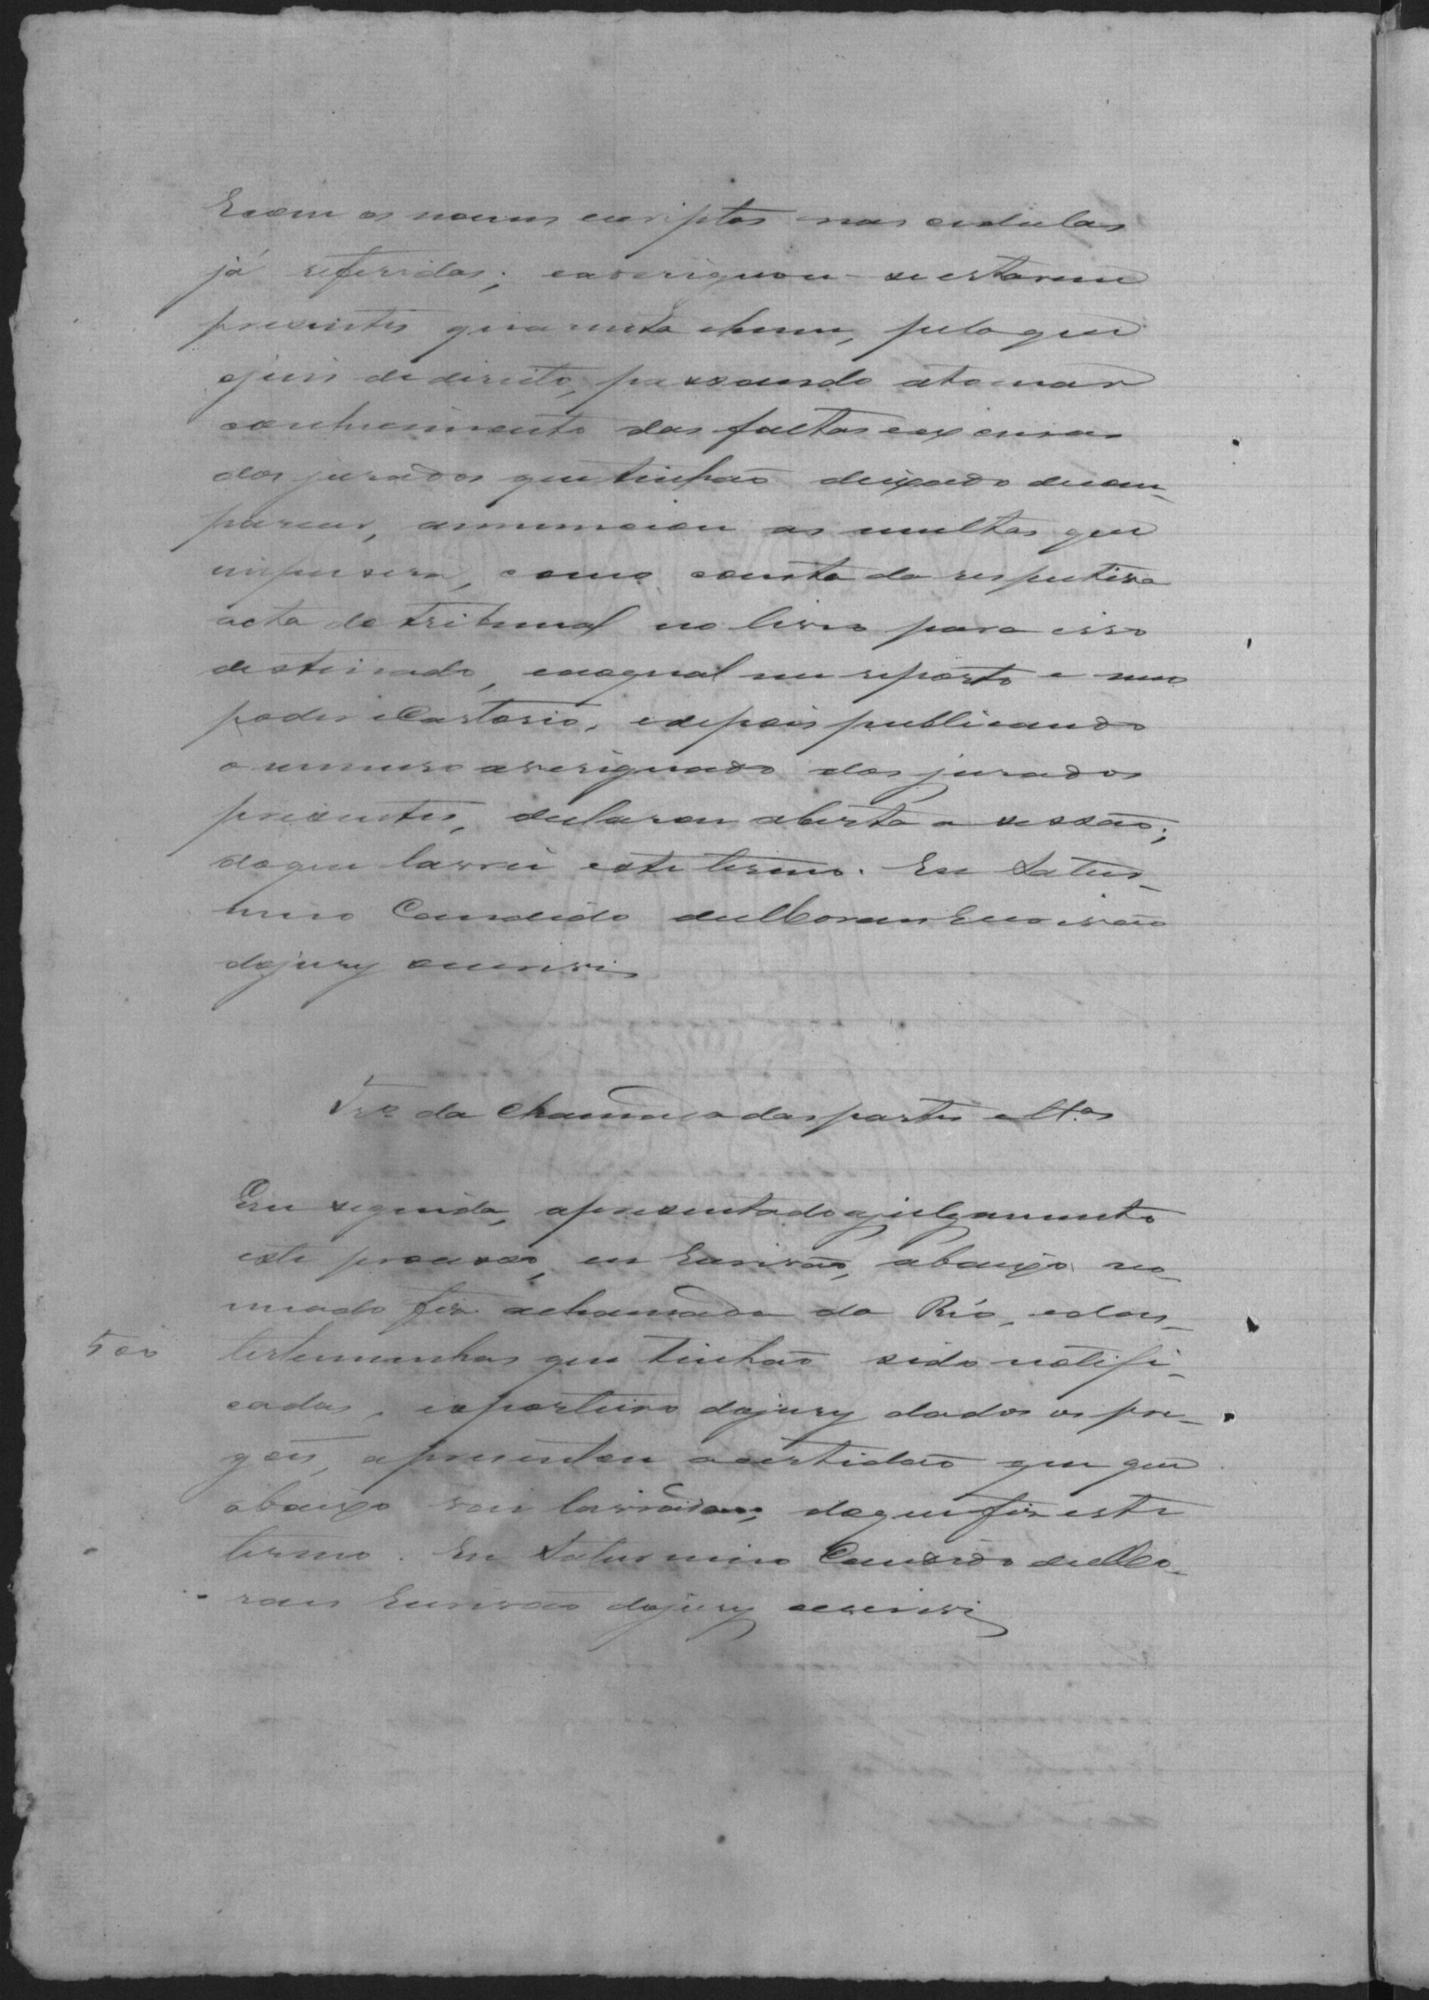 E com os nomes escriptos nas cedulas
já referidas; e averiguou-se estarem
presentes quarenta e hum, pelo que
o juis de direito, passando a tomar
conhecimento das faltas e excusas
dos jurados que tinhão deixado de com-
parecer, annunciou as multas que
impusera, como consta da respectiva
acta do tribunal no livro para isso
destinado, e no qual me reporto e meu
poder e Cartorio, e depois publicando
o numero averiguado dos jurados
presentes, declarou aberta a sessão;
do que lavrei este termo. Eu Satur-
nino Candido de Moraes Escrivão
do jury escrevi
Trº da chamada das partes e Tas
Em seguida, apresentado a julgamento
este processo, eu Escrivão, abaixo no-
meado fis a chamada do Réo, e das
500
testemunhas que tinhão sido notifi-
cadas, e o porteiro do jury dados os pre-
gões, apresentou a certidão que que
abaixo vai lavrada; do que fis este
termo. Eu Saturnino Candido de Mo-
raes Escrivão do jury escrevi